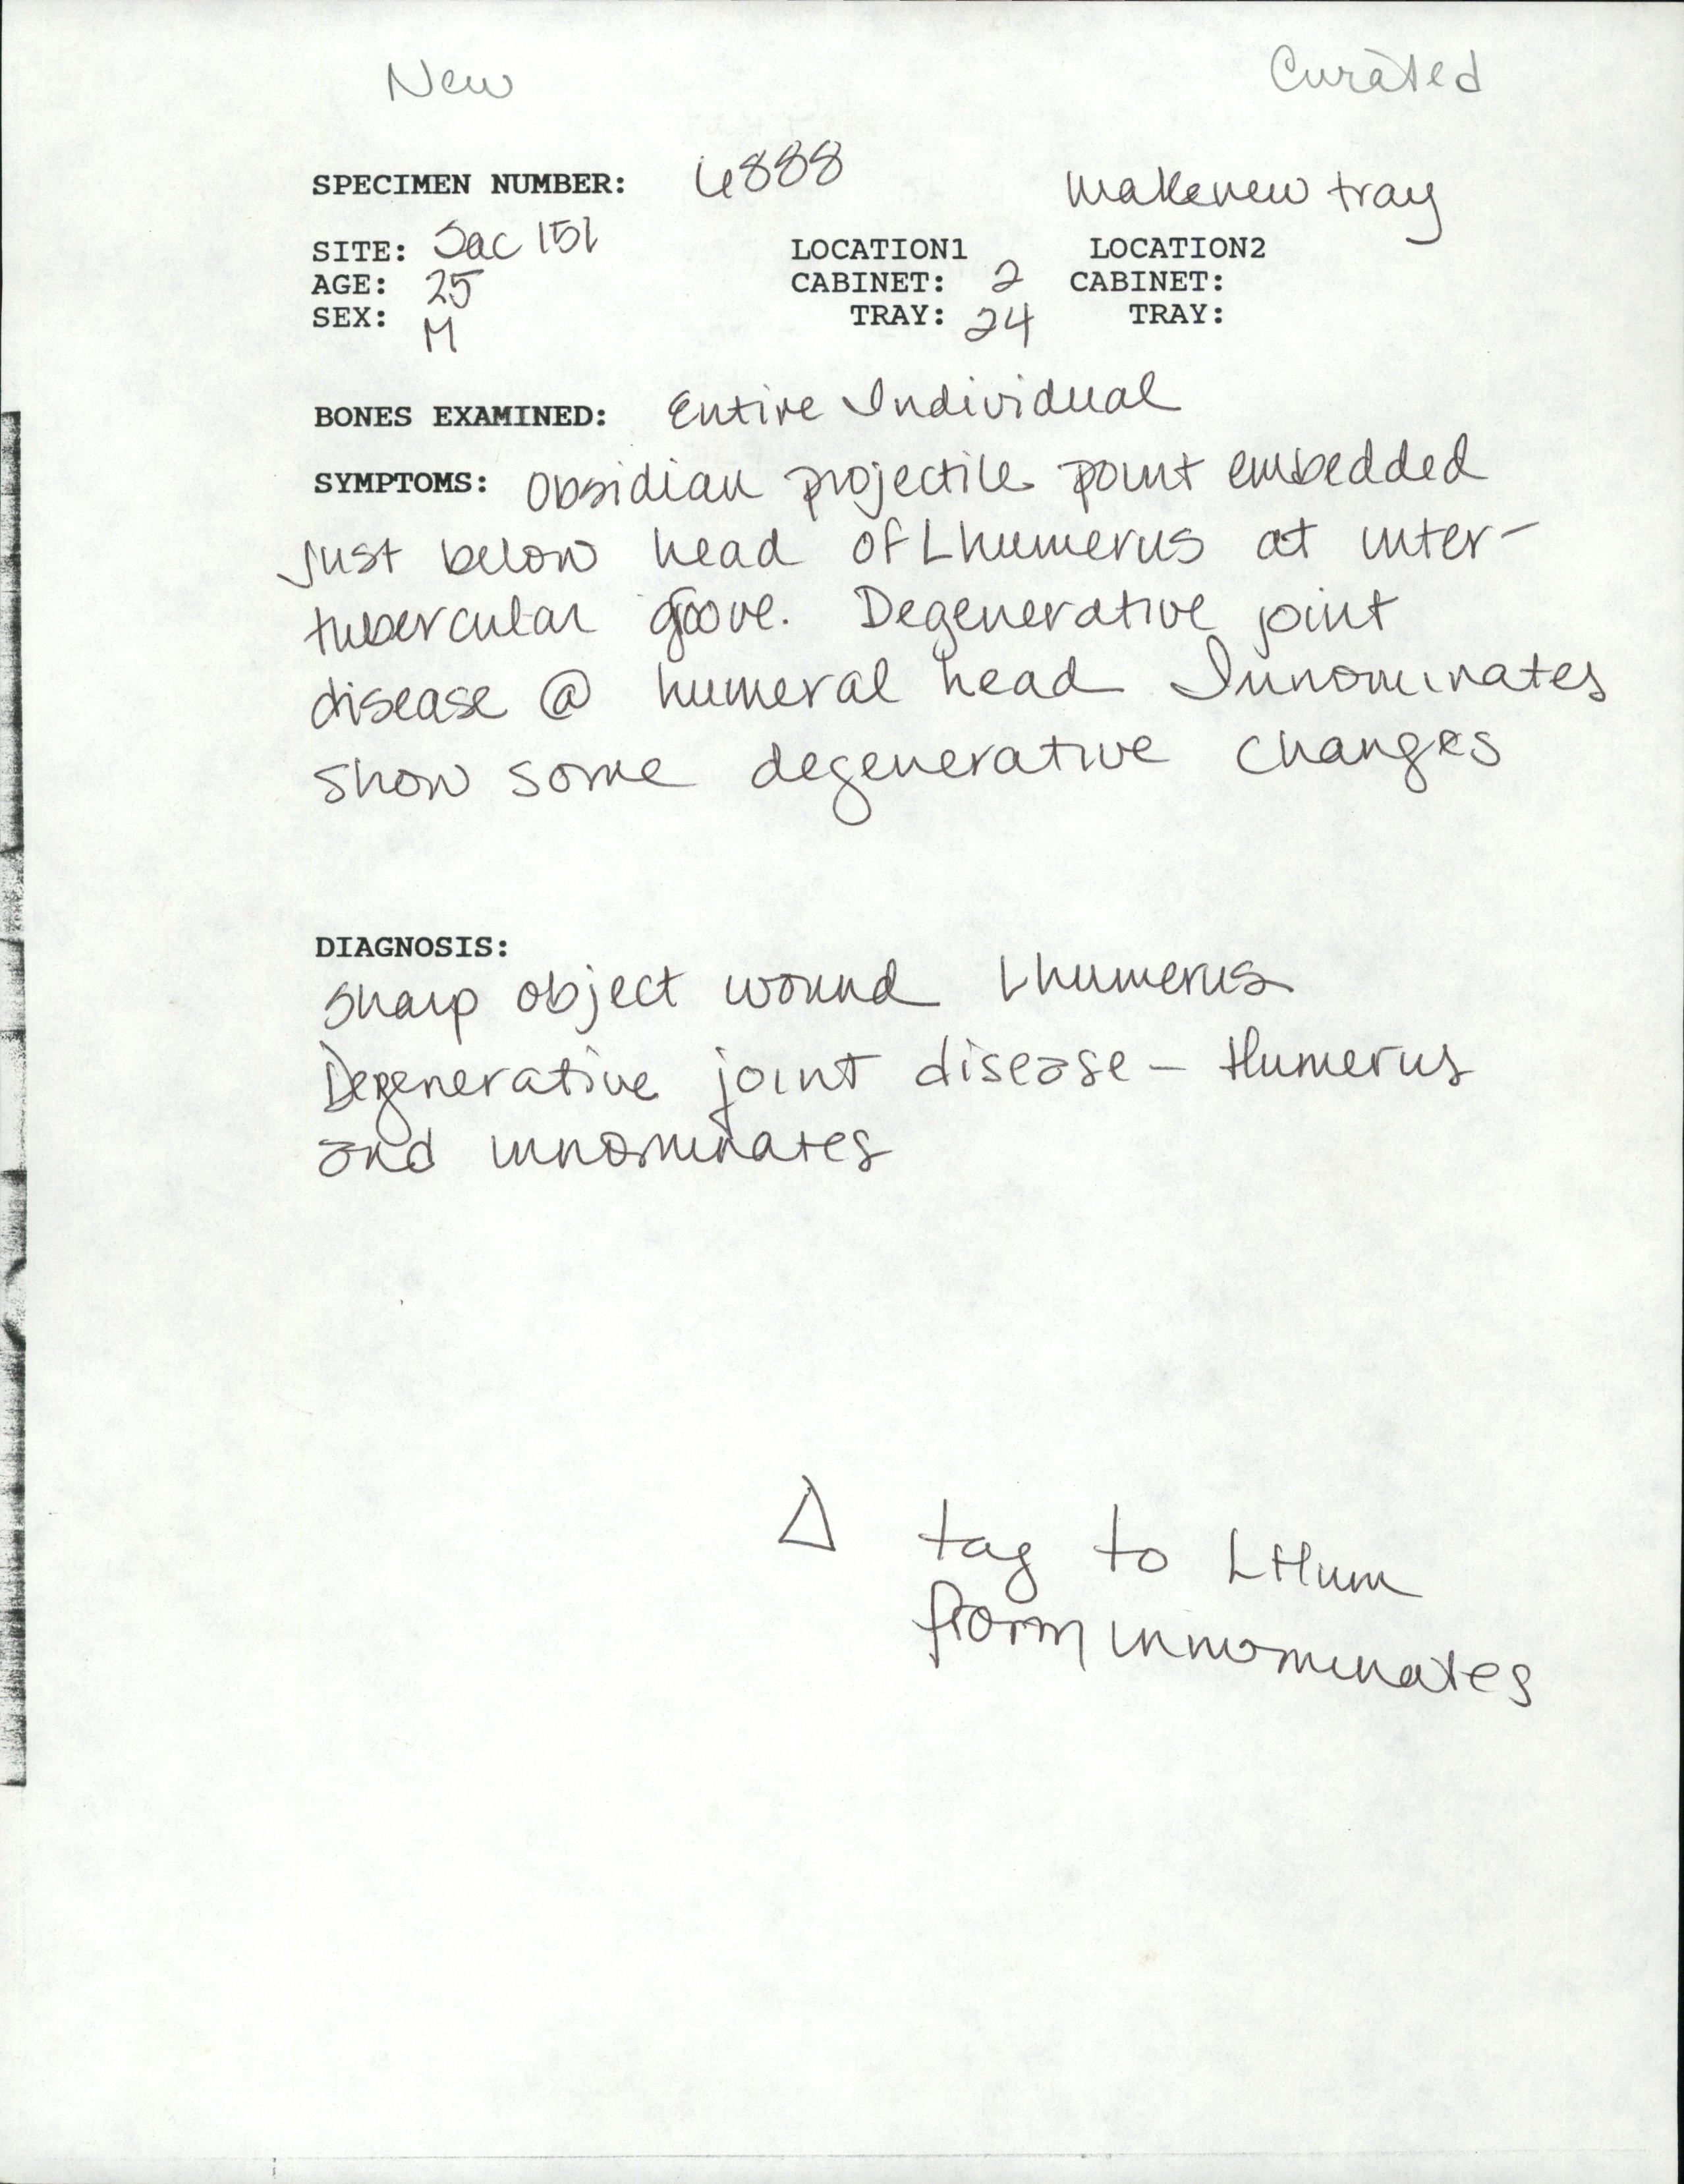 New Curated
SPECIMEN NUMBER: 6888 make new tray
SITE: Sac 151 LOCATION1 LOCATION2
AGE: 25 CABINET: 2 CABINET:
SEX: M TRAY: 24 TRAY:
BONES EXAMINED: Entire Individual
SYMPTOMS: Obsidian projectile point embedded
just below head of L humerus at inter-
tubercular groove. Degenerative joint
disease @ humeral head Innominates
show some degenerative changes
DIAGNOSIS:
sharp object wound L humerus
Degenerative joint disease – Humerus
and innominates
Δ tag to L Hum
from innominates